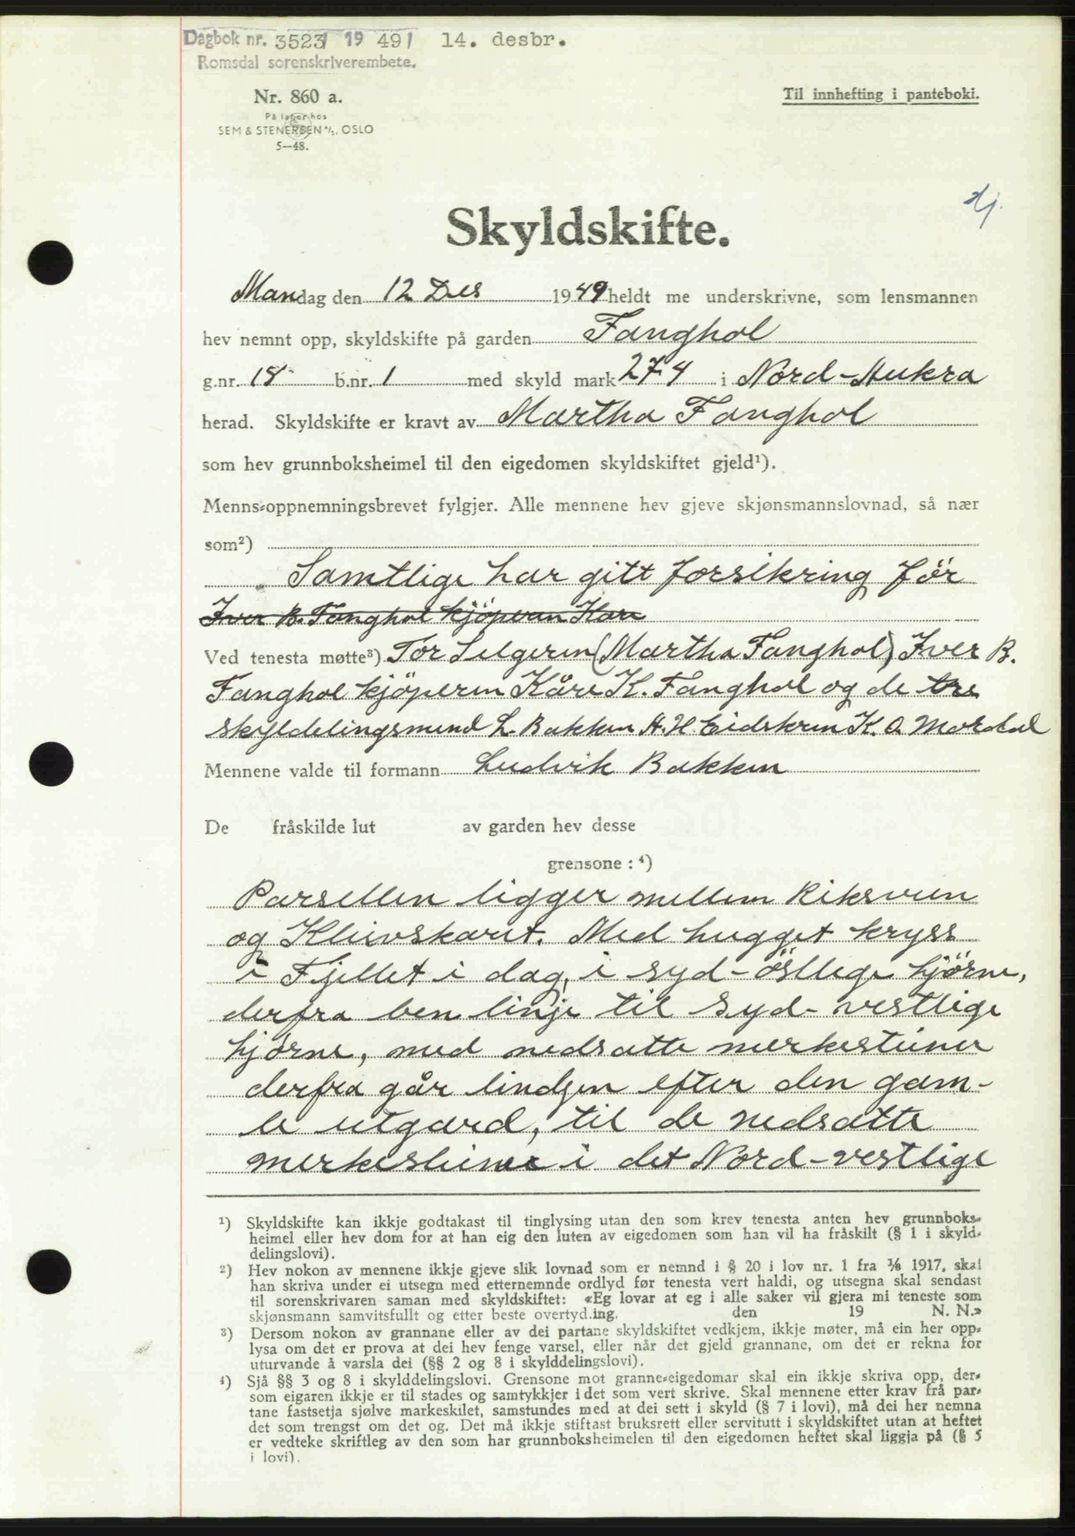 Dagbok nr. 3523/ 19 49/ 14. desbr.
Romsdal sorenskriverembete.
Nr. 860 a.
På lager hos
SEM & STENERSEN A/S. OSLO
5—48.
Til innhefting i panteboki.
Skyldskifte.
Mandag den 12 Des 1949 heldt me underskrivne, som lensmannen
hev nemnt opp, skyldskifte på garden Fanghol
g.nr. 18 b.nr. 1 med skyld mark 274 i Nord-Aukra
herad. Skyldskifte er kravt av Martha Fanghol
som hev grunnboksheimel til den eigedomen skyldskiftet gjeld¹).
Menns-oppnemningsbrevet fylgjer. Alle mennene hev gjeve skjønsmannslovnad, så nær
som²)
Samtlige har gitt forsikring för
Iver B. Fanghol kjöperen Kåre
Ved tenesta møtte³) For Selgeren (Martha Fanghol) Iver B.
Fanghol kjöperen Kåre K. Fanghol og de tre
skylddelingsmend L. Bakken A. H. Eidskrem K. O.
Mennene valde til formann Ludvik Bakken
De fråskilde lut av garden hev desse
grensone : ⁴)
Parsellen ligger mellem Riksveien
og Kleivskaret. Med hugget kryss
i Fjellet i dag, i syd-östlige hjörne,
derfra ben linje til Syd-vestlige
hjörne, med nedsatte merkesteiner
derfra går lindjen efter den gam-
le utgard, til de nedsatte
merkesteiner i det Nord-vestlige
¹) Skyldskifte kan ikkje godtakast til tinglysing utan den som krev tenesta anten hev grunnboks-
heimel eller hev dom for at han eig den luten av eigedomen som han vil ha fråskilt (§ 1 i skyld-
delingslovi).
²) Hev nokon av mennene ikkje gjeve slik lovnad som er nemnd i § 20 i lov nr. 1 fra ⅛ 1917, skal
han skriva under ei utsegn med etternemnde ordlyd før tenesta vert haldi, og utsegna skal sendast
til sorenskrivaren saman med skyldskiftet: «Eg lovar at eg i alle saker vil gjera mi teneste som
skjønsmann samvitsfullt og etter beste overtyding. den 19 N. N.»
³) Dersom nokon av grannane eller av dei partane skyldskiftet vedkjem, ikkje møter, må ein her opp-
lysa om det er prova at dei hev fenge varsel, eller når det gjeld grannane, om det er rekna for
uturvande å varsla dei (§§ 2 og 8 i skylddelingslovi).
⁴) Sjå §§ 3 og 8 i skylddelingslovi. Grensone mot granne-eigedomar skal ein ikkje skriva opp, der-
som eigaren ikkje er til stades og samtykkjer i det som vert skrive. Skal mennene etter krav frå par-
tane fastsetja sjølve markeskilet, samstundes med at dei sett i skyld (§ 7 i lovi), må dei her nemna
det som trengst om det og. Det må ikkje stiftast bruksrett eller servitutt i skyldskiftet utan at heftet
er vedteke skriftleg av den som har grunnboksheimelen til den eigedomen heftet skal liggja på (§ 5
i lovi).